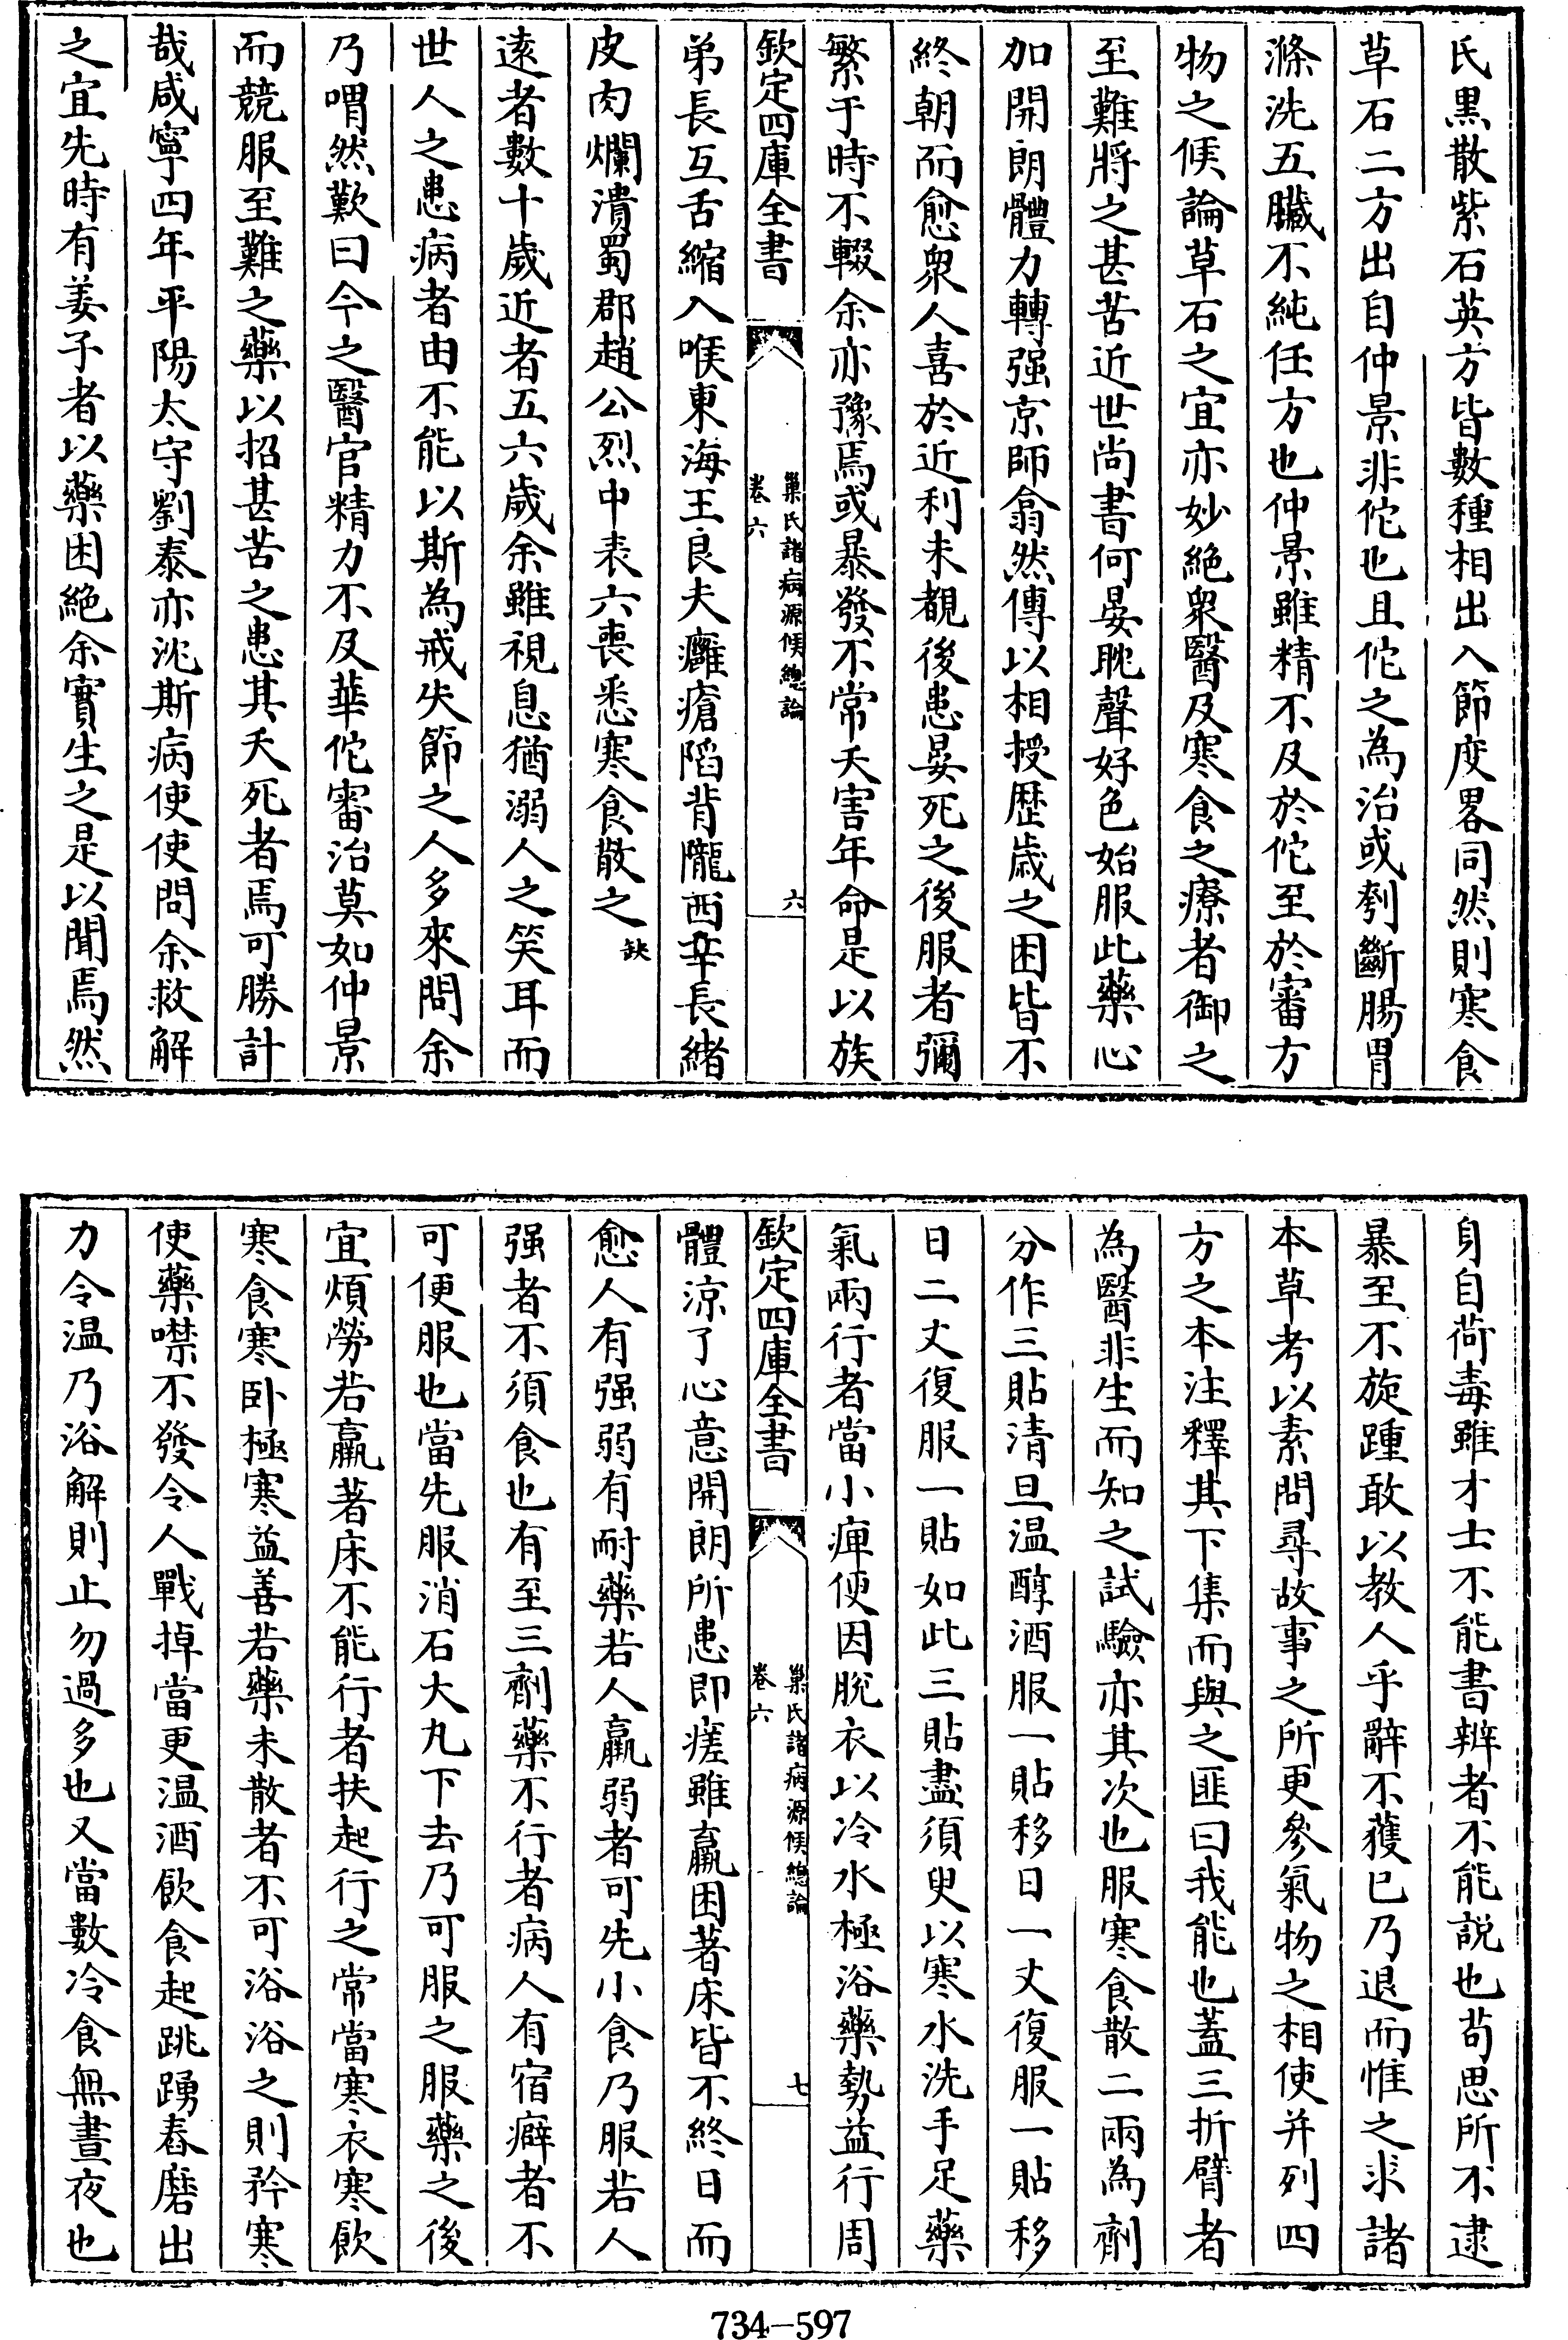 氏黒散紫石英方皆數種相出入節度畧同然則寒食
草石二方出自仲景非佗也且佗之為治或刳斷腸胃
滌洗五臟不純任方也仲景雖精不及於佗至於審方
物之候論草石之宜亦妙絶衆醫及寒食之療者御之
至難將之甚苦近世尚書何晏耽聲好色始服此藥心
加開朗體力轉强京師翕然傳以相授歴歲之困皆不
終朝而愈衆人喜於近利未覩後患晏死之後服者彌
繁于時不輟余亦豫焉或暴發不常夭害年命是以族
欽定四庫全書
巢氏諸病源候總論
卷六
六
弟長互舌縮入喉東海王良夫癰瘡陷背隴西辛長緒
皮肉爛潰蜀郡趙公烈中表六喪悉寒食散之缺
逺者數十歲近者五六歲余雖視息猶溺人之笑耳而
世人之患病者由不能以斯為戒失節之人多來問余
乃喟然歎曰今之醫官精力不及華佗審治莫如仲景
而競服至難之藥以招甚苦之患其夭死者焉可勝計
哉咸寧四年平陽太守劉泰亦沈斯病使使問余救解
之宜先時有姜子者以藥困絶余實生之是以聞焉然
身自荷毒雖才士不能書辨者不能説也茍思所不逮
暴至不旋踵敢以教人乎辭不獲已乃退而惟之求諸
本草考以素問尋故事之所更參氣物之相使并列四
方之本注釋其下集而與之匪曰我能也蓋三折臂者
為醫非生而知之試驗亦其次也服寒食散二兩為劑
分作三貼清旦温醇酒服一貼移日一丈復服一貼移
日二丈復服一貼如此三貼盡須臾以寒水洗手足藥
氣兩行者當小痺便因脫衣以冷水極浴藥勢益行周
欽定四庫全書
巢氏諸病源候總論
卷六
七
體涼了心意開朗所患即瘥雖羸困著床皆不終日而
愈人有强弱有耐藥若人羸弱者可先小食乃服若人
强者不須食也有至三劑藥不行者病人有宿癖者不
可便服也當先服消石大丸下去乃可服之服藥之後
宜煩勞若羸著床不能行者扶起行之常當寒衣寒飲
寒食寒卧極寒益善若藥未散者不可浴浴之則矜寒
使藥噤不發令人戰掉當更温酒飲食起跳踴舂磨出
力令温乃浴解則止勿過多也又當數冷食無晝夜也
734-597